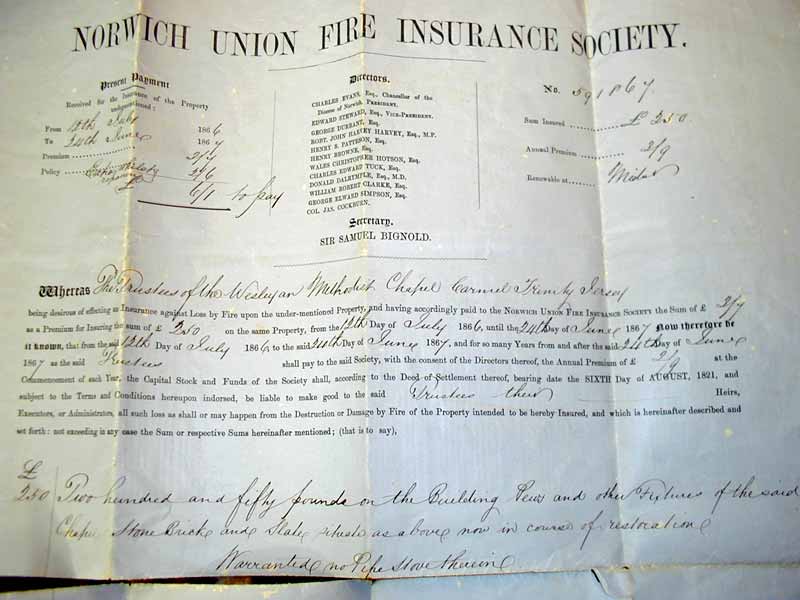 NORWICH UNION FIRE INSURANCE SOCIETY.
Present Payment
Received for the Insurance of the Property
undermentioned:
From 12th July 1866
To 24th June 1867
Premium 2/7
Policy 3/6
6/1 to pay
Directors.
CHARLES EVANS, Esq., Chancellor of the
Diocese of Norwich, PRESIDENT.
EDWARD STEWARD, Esq., VICE-PRESIDENT.
GEORGE DURRANT, Esq.
ROBT. JOHN HARVEY HARVEY, Esq., M.P.
HENRY S. PATTESON, Esq.
HENRY BROWNE, Esq.
WALES CHRISTOPHER HOTSON, Esq.
CHARLES EDWARD TUCK, Esq.
DONALD DALRYMPLE, Esq., M.D.
WILLIAM ROBERT CLARKE, Esq.
GEORGE EDWARD SIMPSON, Esq.
COL. JAS. COCKBURN.
Secretary.
SIR SAMUEL BIGNOLD.
No. 591867
Sum Insured £ 250
Annual Premium 2/9
Renewable at Midsr
Whereas The Trustees of the Wesleyan Methodist Chapel Carmel Trinity Jersey
being desirous of effecting an Insurance against Loss by Fire upon the under-mentioned Property, and having accordingly paid to the NORWICH UNION FIRE INSURANCE SOCIETY the Sum of £ 2/7
as a Premium for Insuring the sum of £ 250 on the same Property, from the 12th Day of July 1866, until the 24th Day of June 1867 Now therefore be
it known, that from the said 12th Day of July 1866 to the said 24th Day of June 1867, and for so many Years from and after the said 24th Day of June
1867 as the said Trustees shall pay to the said Society, with the consent of the Directors thereof, the Annual Premium of £ 2/9 at the
Commencement of each Year, the Capital Stock and Funds of the Society shall, according to the Deed of Settlement thereof, bearing date the SIXTH Day of AUGUST, 1821, and
subject to the Terms and Conditions hereupon indorsed, be liable to make good to the said Trustees their Heirs,
Executors, or Administrators, all such loss as shall or may happen from the Destruction or Damage by Fire of the Property intended to be hereby Insured, and which is hereinafter described and
set forth: not exceeding in any case the Sum or respective Sums hereinafter mentioned; (that is to say),
£
250 Two hundred and fifty pounds on the Building Pews and other Fixtures of the said
Chapel Stone Brick and Slate situate as above now in course of restoration
Warranted no Pipe Stove therein